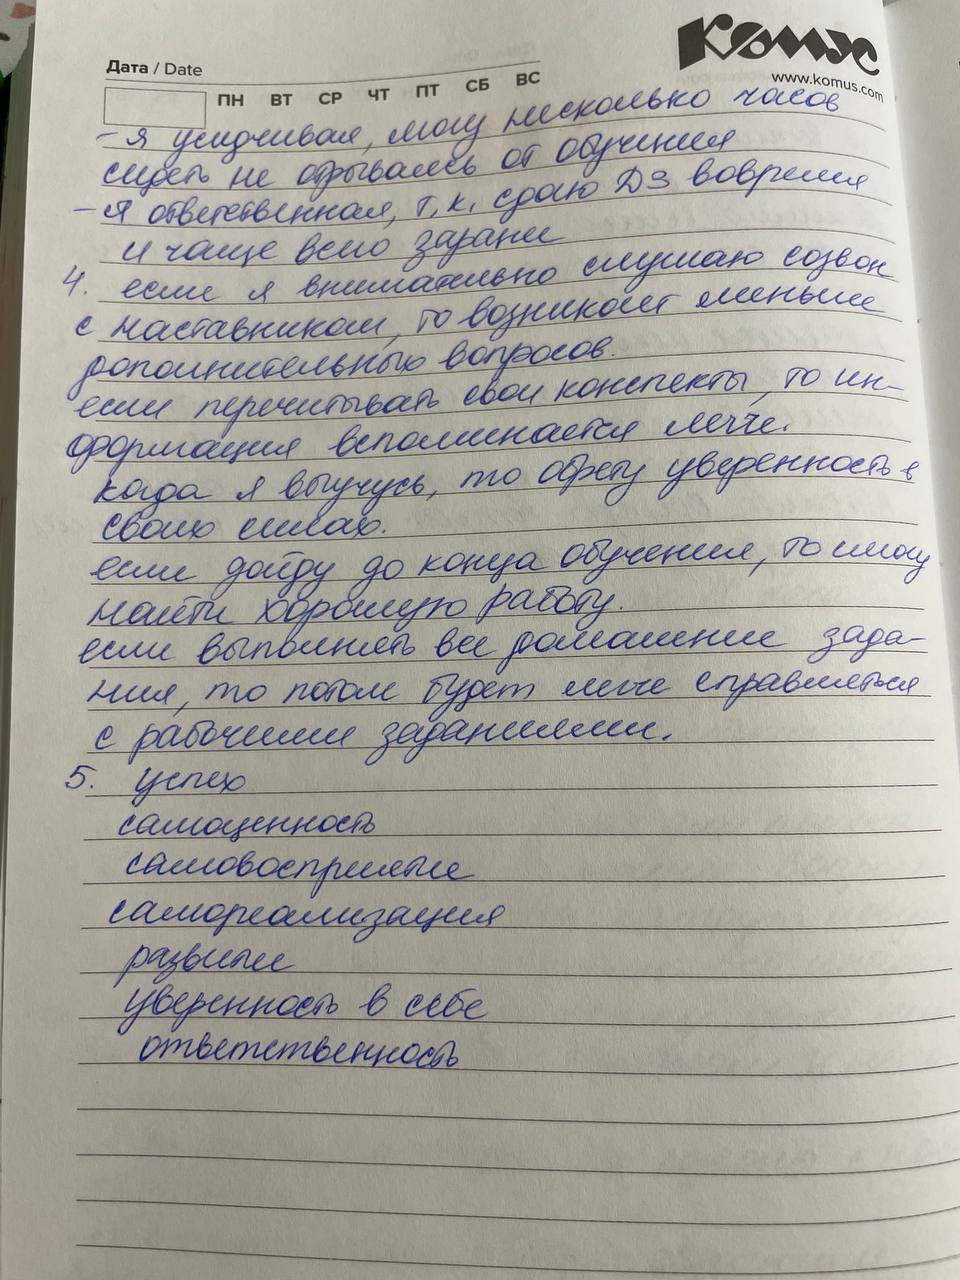 Комус
www.komus.com
Дата / Date
ПН ВТ СР ЧТ ПТ СБ ВС
- я усидчивая, могу несколько часов
сидеть не отрываясь от обучения
- я ответственная, т.к. сдаю ДЗ вовремя
и чаще всего заранее
4. если я внимательно слушаю созвон
с наставником, то возникает меньше
дополнительных вопросов.
если перечитывать свои конспекты, то ин-
формация вспоминается легче.
когда я выучусь, то обрету уверенность в
своих силах.
если дойду до конца обучения, то смогу
найти хорошую работу.
если выполнять все домашние зада-
ния, то потом будет легче справляться
с рабочими заданиями.
5. успех
самоценность
самовосприятие
самореализация
развитие
уверенность в себе
ответственность